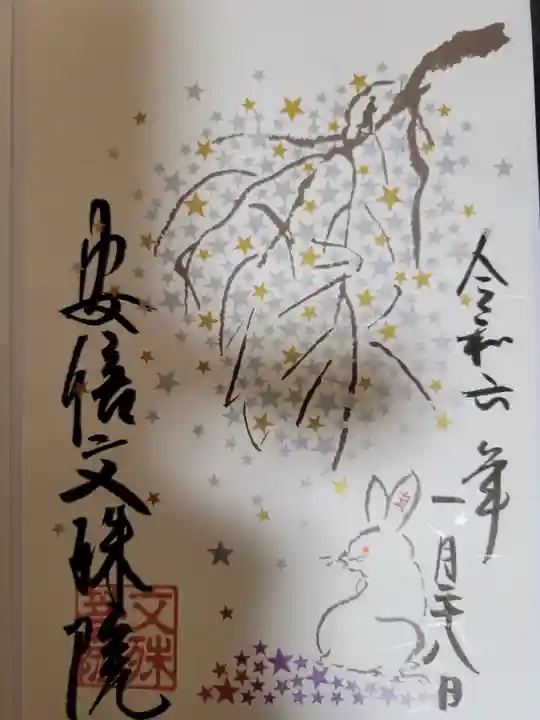 令和六年
一月二十八日
安倍文殊院